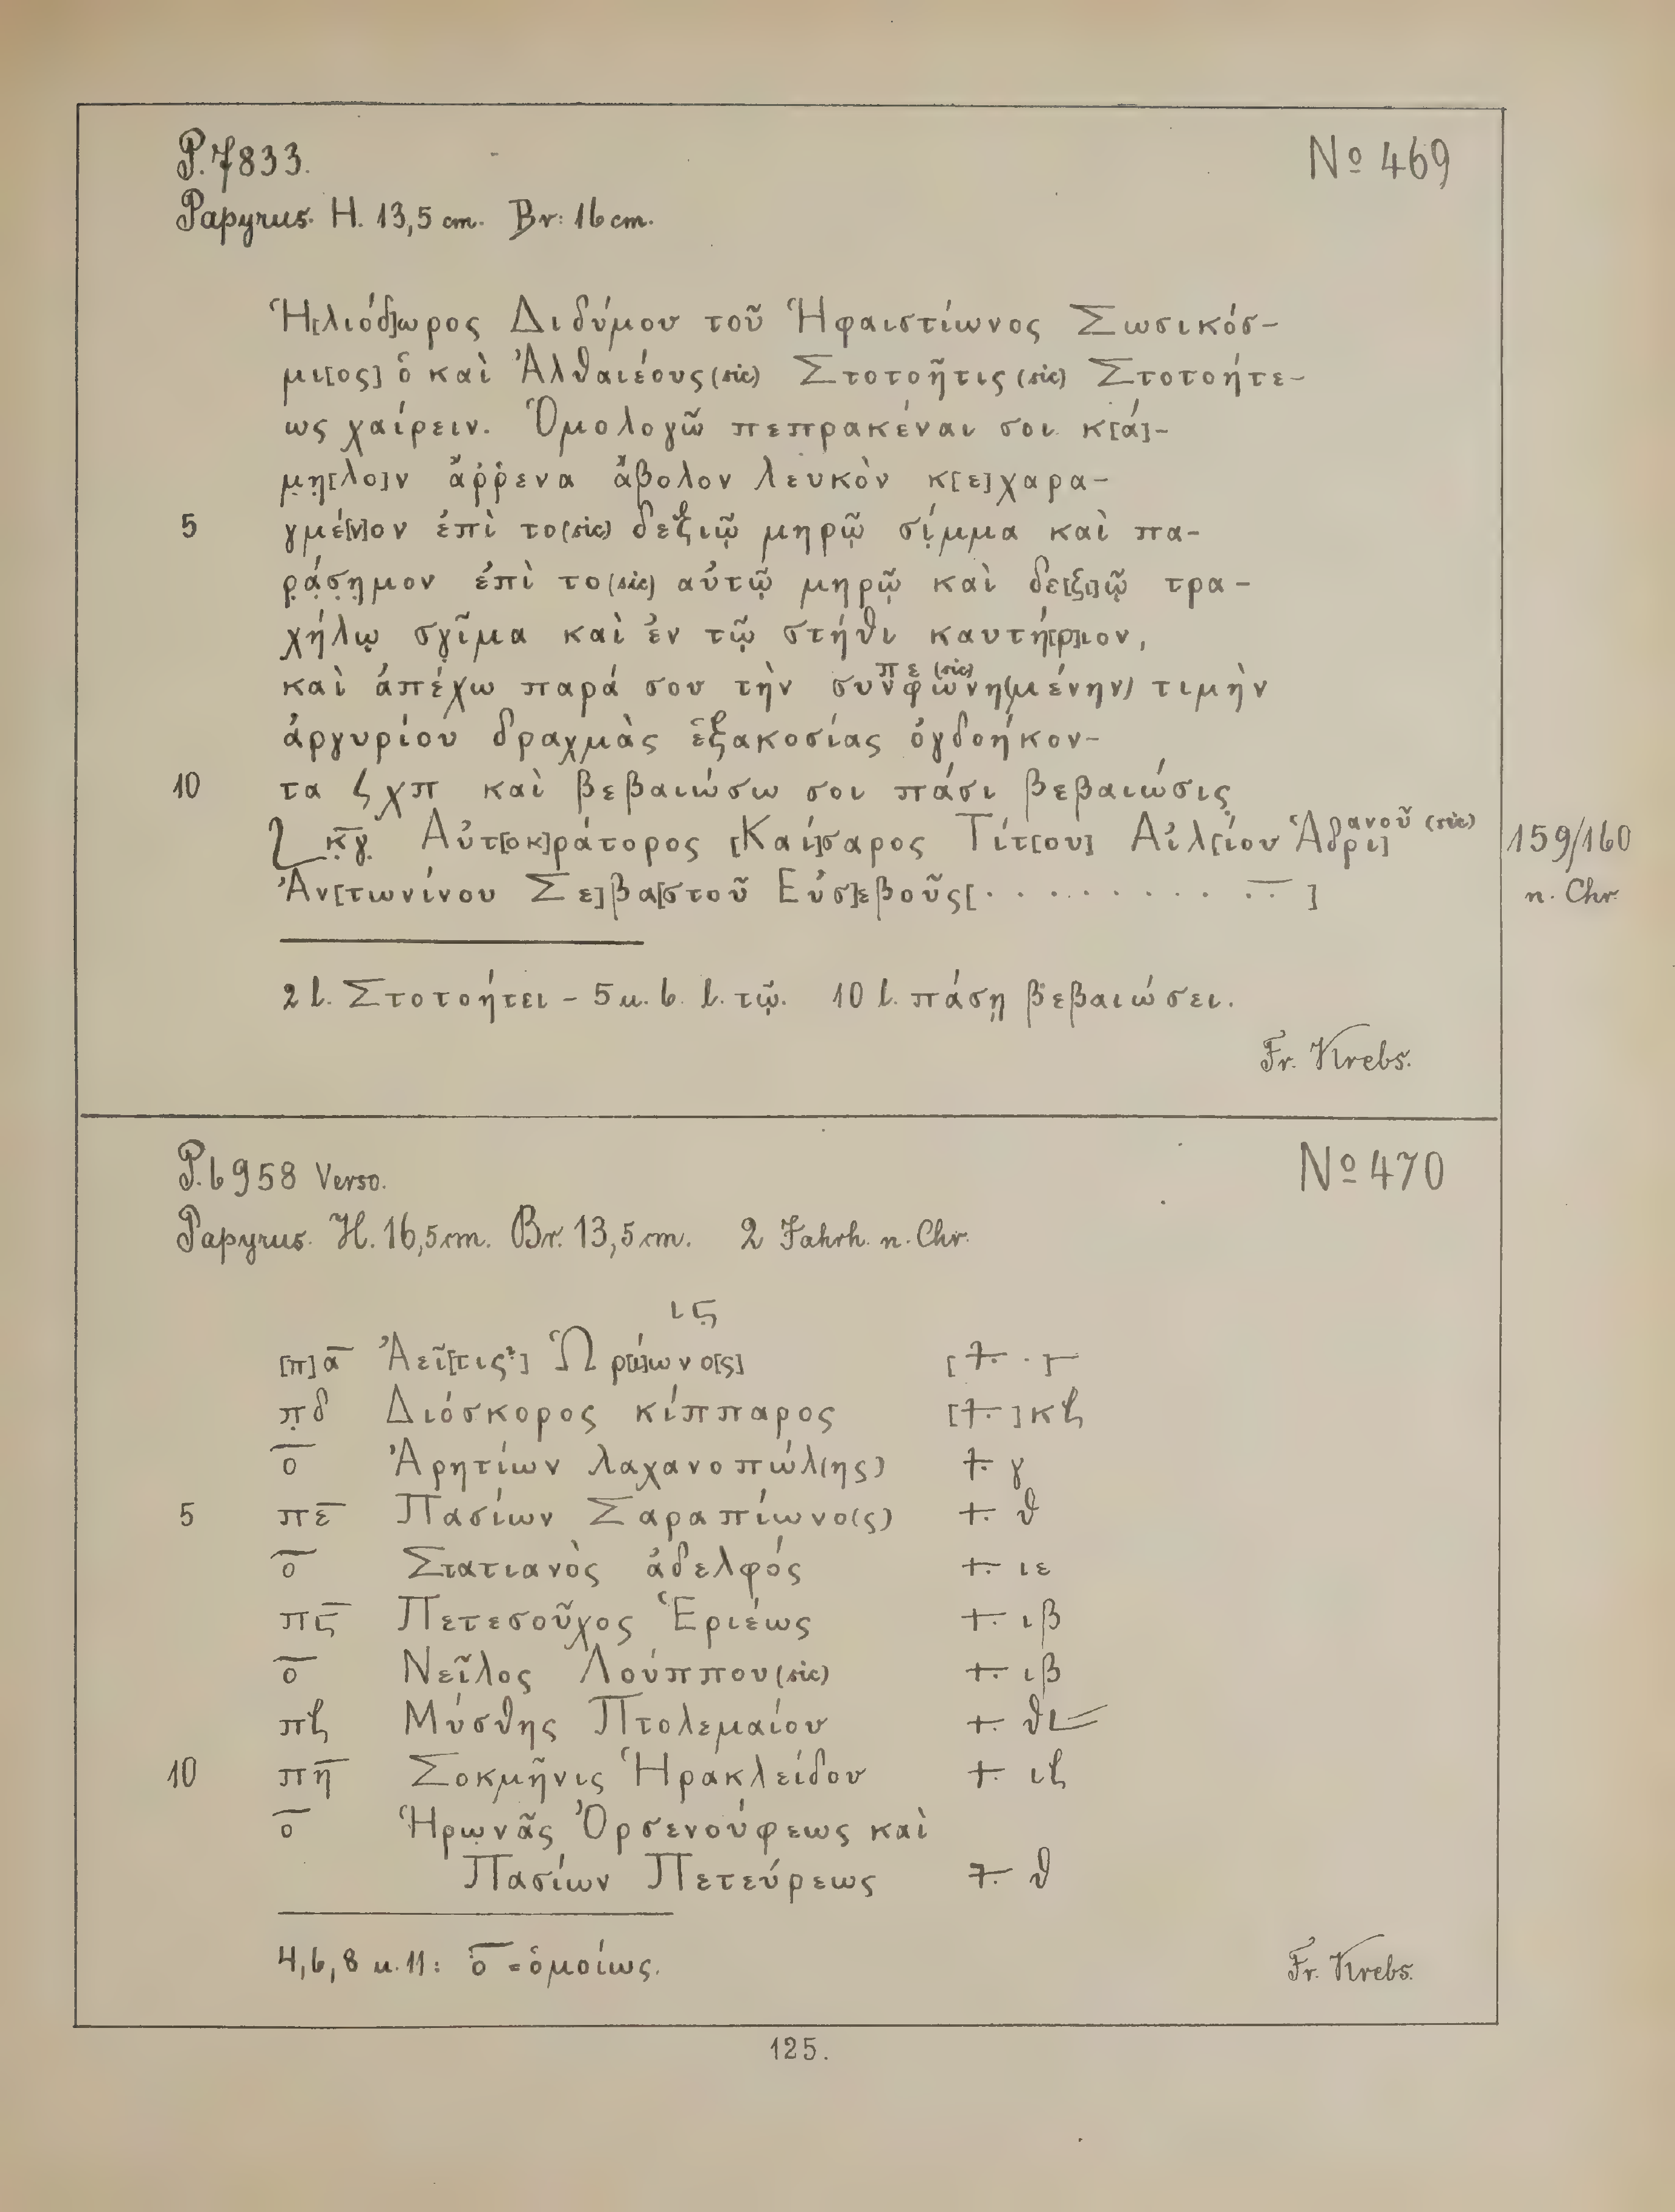 P. 7833.
No 469
Papyrus. H. 13,5 cm. Br: 16 cm.
Ἡ[λιόδ]ωρος Διδύμου τοῦ Ἡφαιστίωνος Σωσικόσ-
μι[ος] ὁ καὶ Ἀλθαιέους (sic) Στοτοῆτις (sic) Στοτοήτε-
ως χαίρειν. Ὁμολογῶ πεπρακέναι σοι κ[ά]-
μ̣η̣[λο]ν ἄῤῥενα ἄβολον λευκὸν κ[ε]χαρα-
5 γμέ[ν]ον ἐπὶ το (sic) δεξιῷ μηρῷ σί̣μμα καὶ πα-
ρ̣ά̣σ̣η̣μον ἐπὶ το (sic) αὐτῷ μηρῷ καὶ δε[ξι]ῷ τρα-
χήλῳ σγῖμα καὶ ἐν τῷ στήθι καυτή[ρ]ιον,
καὶ ἀπέχω παρά σου τὴν συνπεφωνη(μένην) (sic) τιμὴν
ἀργυρίου δραχμὰς ἑξακοσίας ὀγδοήκον-
10 τα ʕ χπ καὶ βεβαιώσω σοι πάσι βεβαιώσις
L κ̣γ̣ Αὐτ[οκ]ράτορος [Καί]σαρος Τίτ[ου] Αἰλ[ίου Ἁδρι]ανοῦ (sic)
159/160 n. Chr.
Ἀν[τωνίνου Σε]βα[στοῦ Εὐσ]εβοῦς[· · · · · · · · · · · ]
2 l. Στοτοήτει – 5 u. 6. l. τῷ. 10 l. πάσῃ βεβαιώσει.
Fr. Krebs.
P. 6958 Verso.
No 470
Papyrus. H. 16,5 cm. Br. 13,5 cm. 2 Jahrh. n. Chr.
ιϛ̣
[π]α̅ Ἀεῖ[τις?] Ὡρ[ί]ωνο[ς] [⳨ · ]
π̣δ Διόσκορος κίππαρος [⳨]κζ
ο̅ Ἀρητίων λαχανοπώλ(ης) ⳨ γ
5 πε̅ Πασίων Σαραπίωνο(ς) ⳨ θ
ο̅ Στατιανὸς ἀδελφός ⳨ ιε
πϛ̅ Πετεσοῦχος Ἑριέως ⳨ ιβ
ο̅ Νεῖλος Λούππου (sic) ⳨ ιβ
πζ Μύσθης Πτολεμαίου ⳨ θL
10 πη̅ Σοκμῆνις Ἡρακλείδου ⳨ ιζ
ο̅ Ἡρω̣νᾶς Ὀρσενούφεως καὶ
Πασίων Πετεύρεως ⳨ θ
4, 6, 8 u. 11: ο̅ = ὁμοίως.
Fr. Krebs.
125.